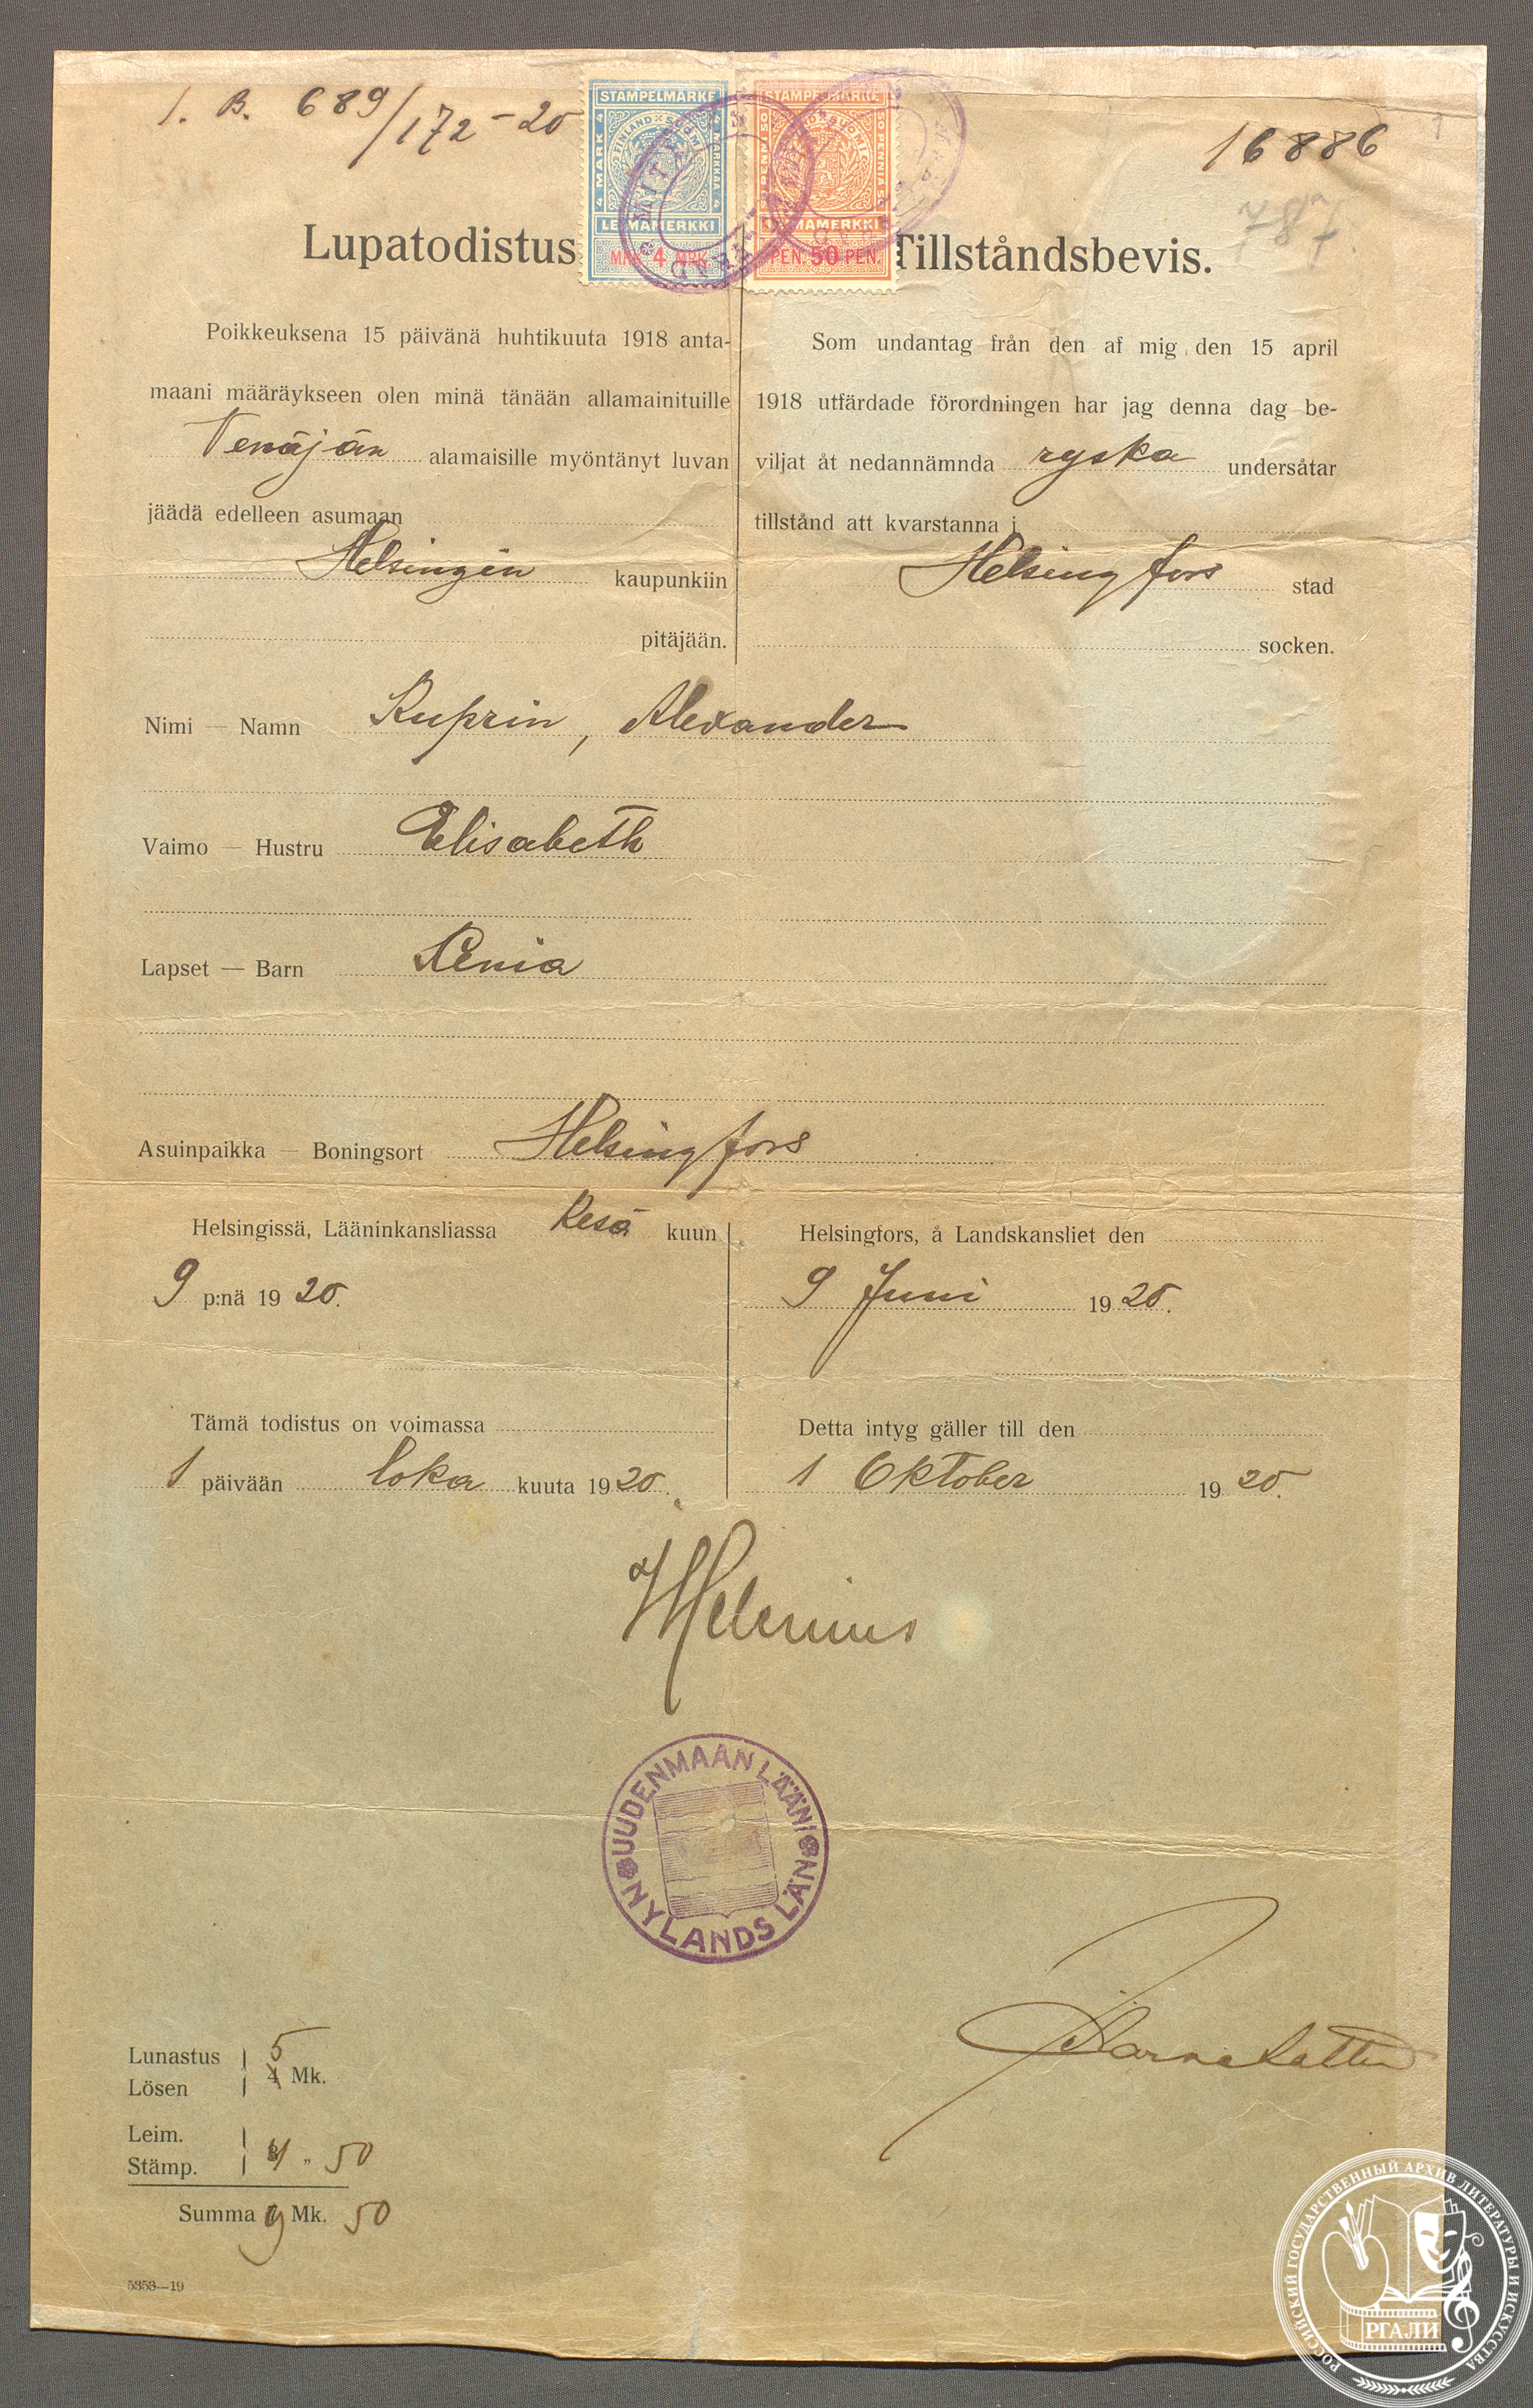 1. B. 689/172-20
16886
787
STÄMPELMÄRKE
FINLAND SUOMI
4 MARK 4
4 MARKKAA 4
LEIMAMERKKI
MRK. 4 MRK.
STÄMPELMÄRKE
50 PENNI 50
50 PENNIÄ 50
LEIMAMERKKI
PEN. 50 PEN.
Lupatodistus
Poikkeuksena 15 päivänä huhtikuuta 1918 anta-
maani määräykseen olen minä tänään allamainituille
Venäjän alamaisille myöntänyt luvan
jäädä edelleen asumaan
Helsingin kaupunkiin
pitäjään.
Tillståndsbevis.
Som undantag från den af mig den 15 april
1918 utfärdade förordningen har jag denna dag be-
viljat åt nedannämnda ryska undersåtar
tillstånd att kvarstanna i
Helsingfors stad
socken.
Nimi — Namn Kuprin, Alexander
Vaimo — Hustru Elisabeth
Lapset — Barn Xenia
Asuinpaikka — Boningsort Helsingfors
Helsingissä, Lääninkansliassa Kesä kuun
9 p:nä 1920.
Helsingfors, å Landskansliet den
9 Juni 1920.
Tämä todistus on voimassa
1 päivään loka kuuta 1920.
Detta intyg gäller till den
1 Oktober 1920.
Helenius
UUDENMAAN LÄÄNI
NYLANDS LÄN
Lunastus
Lösen
5
4 Mk.
Leim.
Stämp.
4 „ 50
Summa 9 Mk. 50
5353—19
РОССИЙСКИЙ ГОСУДАРСТВЕННЫЙ АРХИВ ЛИТЕРАТУРЫ И ИСКУССТВА
РГАЛИ